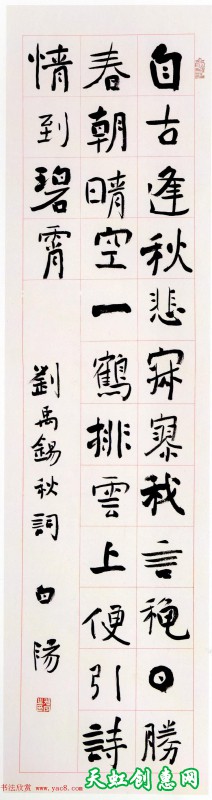 自古逢秋悲寂寥我言穐日勝
春朝晴空一鶴排雲上便引詩
情到碧霄
劉禹錫秋詞 白陽
书法欣赏 www.yac8.com
天虹创意网